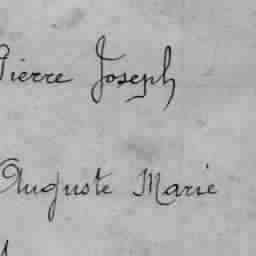 Pierre Joseph
Auguste Marie